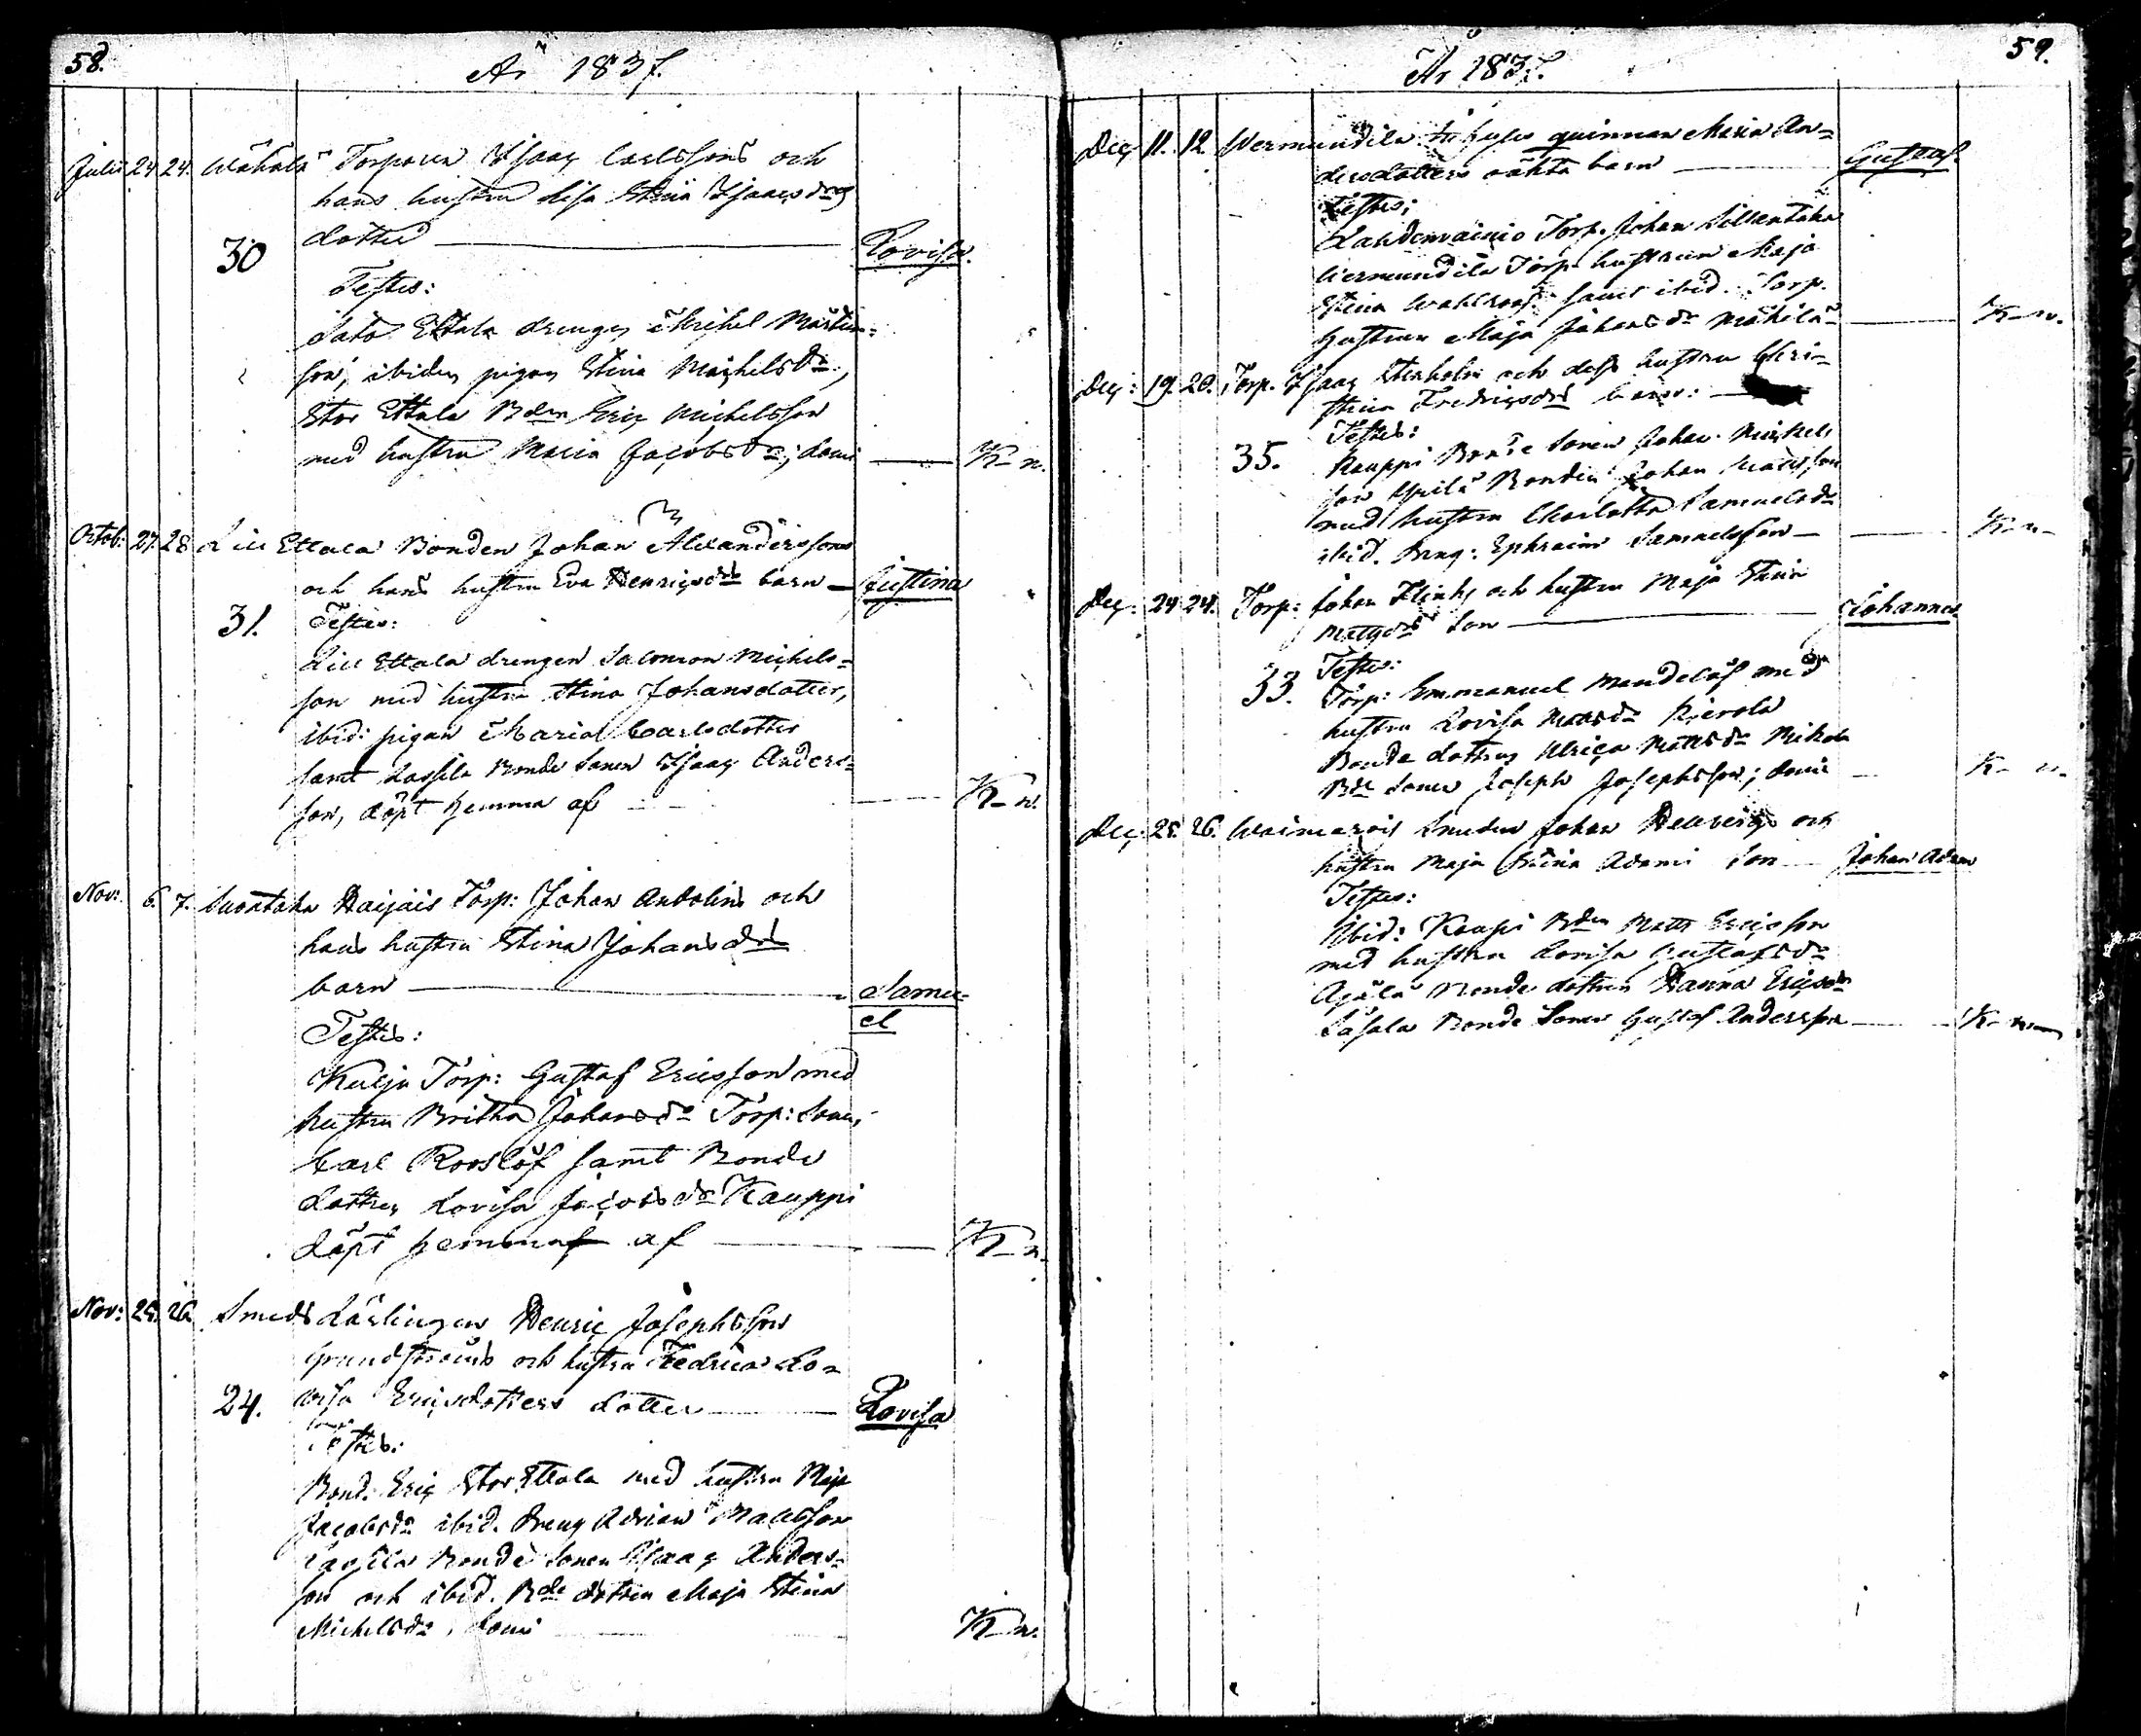 58.
År 1837.
Julii 24 24. Torparen Isaac Carlssons och
hans hustru Lisa Stina Isaacsdrs
dotter — Lovisa.
30
Testes:
Ettala drengen Michel Mårtens=
son, ibidem pigan Stina Michelsdr,
Stor Ettala Bden Eric Michelsson
med hustru Maria Jacobsdr; domi — K—n.
Octob: 27. 28 Lill Ettala Bonden Johan Alexanderssons
och hans hustru Eva Henricsdrs barn — Justina
31. Testes:
Lill Ettala drengen Salomon Michels=
son med hustru Stina Johansdotter,
ibid: pigan Maria Carlsdotter
samt Lassila Bonde Sonen Isaac Anders=
son, döpt hemma af — K—n.
Nov: 6. 7. Suontaka Haijais Torp: Johan Andelins och
hans hustru Stina Johansdrs
barn — Samu=
el
Testes:
Kulju Torp: Gustaf Ericsson med
hustru Britha Johansdr Torp: Sonen
Carl Rooslöf samt Bonde
dottren Lovisa Jacobsdr Kauppi
döpt hemma af — K—n.
Nov: 25. 26. Smeds Lärlingen Henric Josephsson
Grundströms och hustru Fredrica Lo=
visa Ericsdotters dotter — Lovisa
24.
Testes:
Bond. Eric Stor Ettala med hustru Maja
Jacobsdr ibid. Dreng Adrian Mattsson
Lassila Bonde Sonen Isaac Anders=
son och ibid. Bde dottren Maja Stina
Michelsdr, domi — K—n.
59.
År 1837.
Dec 11. 12. Wermundila qvinnan Maria An=
dersdotters oäkta barn — Gustaf.
Testes;
Lahdenvainio Torp. Johan Sillantaka
Wermundila Torp. hustrun Maja
Stina Wahlroos samt ibid. Torp.
hustrun Maja Johansdr Mäkilä — K—n.
Dec: 19. 20. Torp. Isaac Stenholm och dess hustru Chri=
stina Fredricsdrs barn: —
Testes:
35. Kauppi Bonde Sonen Johan Michels
son Bonden Johan Mattsson
med hustru Charlotta Samuelsdr
ibid. Dreng: Ephraim Samuelsson — K—n—
Dec: 24 24. Torp: Johan Flinks och hustru Maja Stina
Mattsdrs Son — Johannes.
Testes:
33. Torp: Emmanuel Mandelöf med
hustru Lovisa Mattsdr Kierola
Bonde dottren Ulrica Mattsdr Mikola
Bde Sonen Joseph Josephsson; domi — K—n.
Dec: 25. 26. Smeden Johan och
hustru Maja Stina Adams Son — Johan Adam
Testes:
Ibid: Kaupi Bden Matts Ericsson
med hustru Lovisa Gustafsdr
Äijälä Bonde dottren Hanna Ericsdr
Säsala Bonde Sonen Gustaf Andersson — K—n—